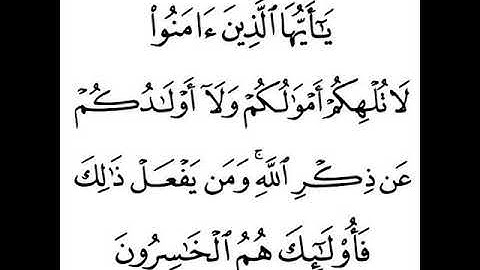 يَـٰٓأَيُّهَا ٱلَّذِينَ ءَامَنُوا۟
لَا تُلْهِكُمْ أَمْوَٰلُكُمْ وَلَآ أَوْلَـٰدُكُمْ
عَن ذِكْرِ ٱللَّهِ ۚ وَمَن يَفْعَلْ ذَٰلِكَ
فَأُو۟لَـٰٓئِكَ هُمُ ٱلْخَـٰسِرُونَ